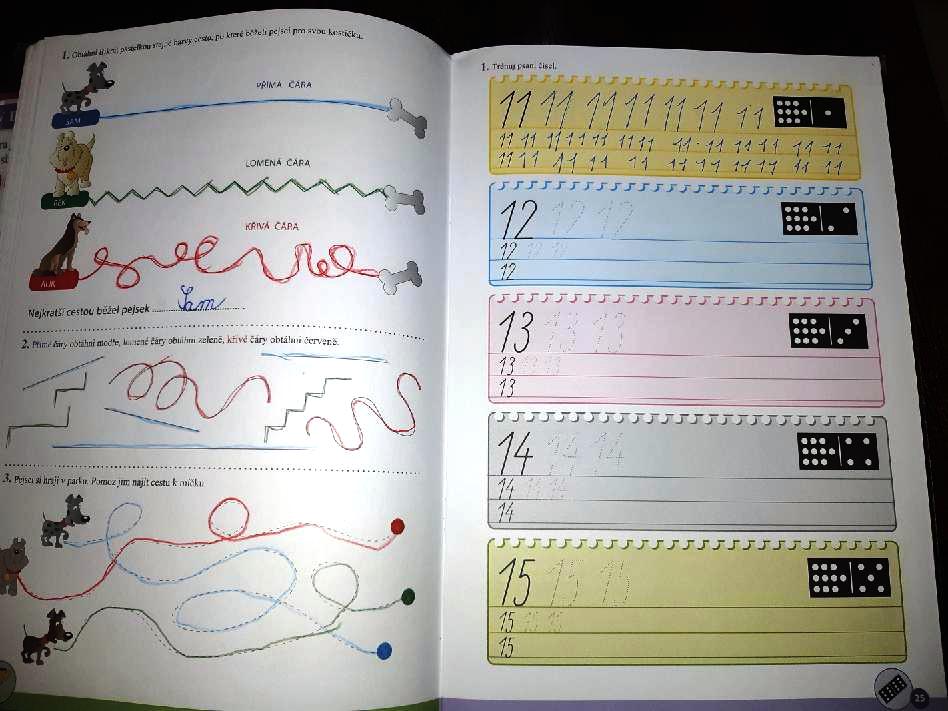 1. Obtáhni silnou pastelkou stejné barvy cestu, po které běželi pejsci pro svou kostičku.
PŘÍMÁ ČÁRA
SAM
LOMENÁ ČÁRA
REK
KŘIVÁ ČÁRA
ALÍK
Nejkratší cestou běžel pejsek Sam
2. Přímé čáry obtáhni modře, lomené čáry obtáhni zeleně, křivé čáry obtáhni červeně.
3. Pejsci si hrají v parku. Pomoz jim najít cestu k míčku.
1. Trénuj psaní čísel.
11 11 11 11 11 11 11
11 11 11 11 11 11 11 11 11 11 11 11
11 11 11 11 11 11 11 11 11 11 11
12 12 12
12 12 12
12
13 13 13
13 13 13
13
14 14 14
14 14 14
14
15 15 15
15 15 15
15
25